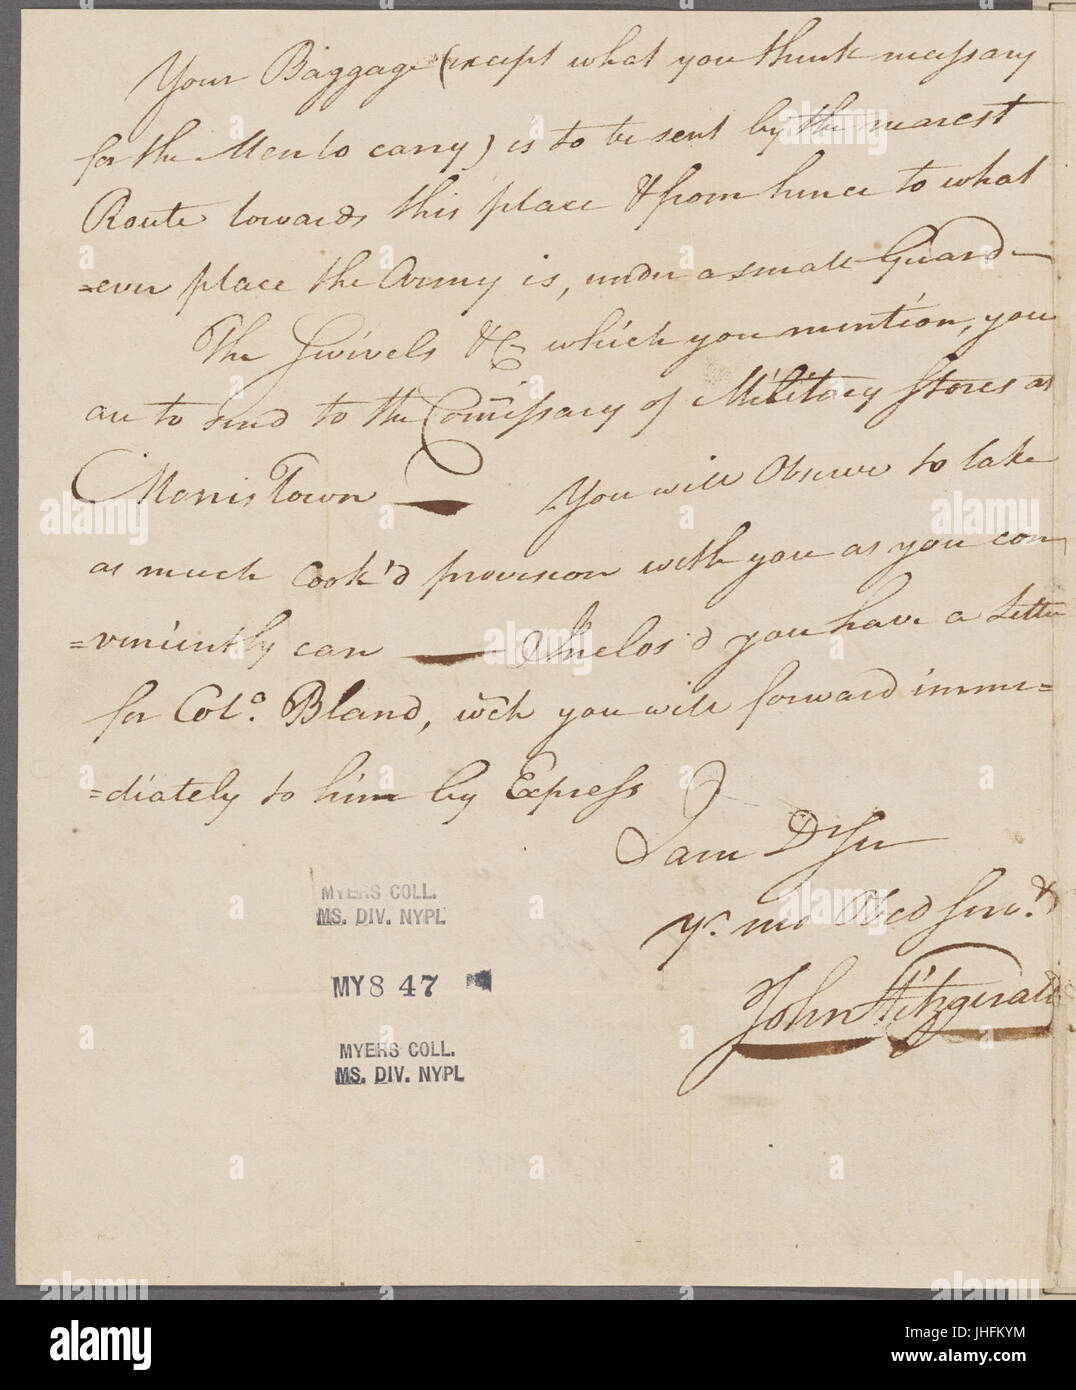 Your Baggage (except what you think necessary
for the Men to carry) is to be sent by the nearest
Route towards this place & from hence to what
=ever place the Army is, under a small Guard—
The Swivels &c which you mention, you
are to send to the Comissary of Military Stores at
Morris Town — You will Observe to take
as much Cook'd provision with you as you con
=veniently can — Inclos'd you have a Letter
for Colo. Bland, wch you will forward imme=
=diately to him by Express
I am Dr Sir
Yr. mo Obed Serv.t
John Fitzgerald
MYERS COLL.
MS. DIV. NYPL
MY 8 47
MYERS COLL.
MS. DIV. NYPL
alamy stock photo
a alamy
Image ID: JHFKYM
www.alamy.com